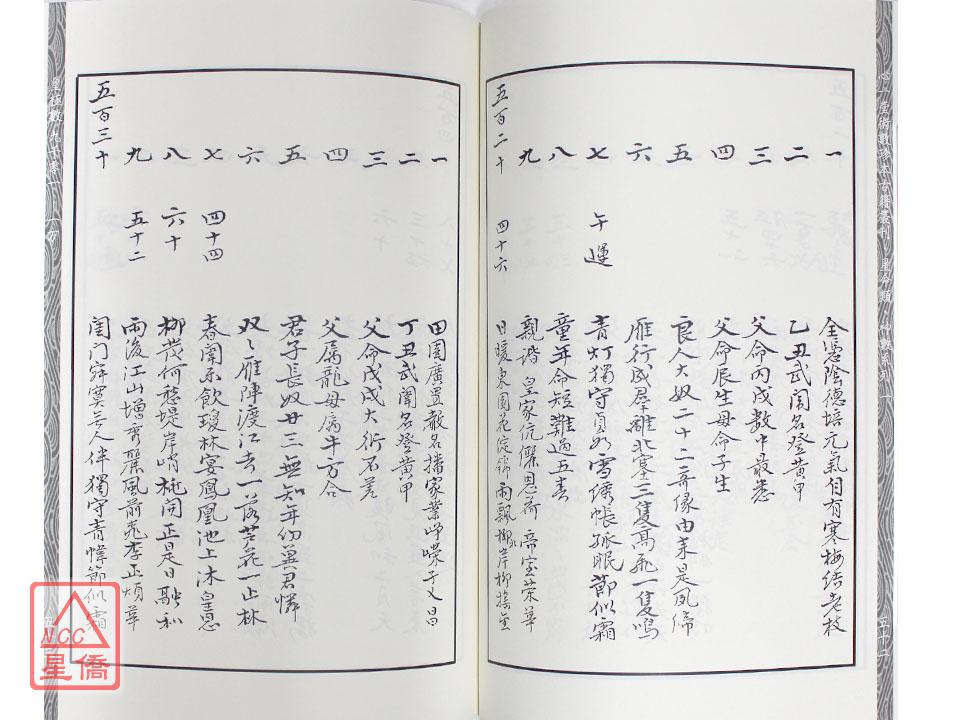 一 全憑陰德培元氣自有寒梅結老枝
二 乙丑武闈名登黃甲
三 父命丙戌數中最悉
四 父命辰生母命子生
五 良人大奴二十二奇緣由來是夙締
六 雁行成群離北塞三隻高飛一隻鳴
七 午運 青灯獨守貞如雪綉帳孤眠節似霜
八 童年命短難過五春
九 親諧皇家伉儷恩荷帝室榮華
五百二十 四十六 日暖東園花綻錦雨飄柳岸柳搖金
一 田園廣置聲名播家業崢嶸子又昌
二 丁丑武闈名登黃甲
三 父命戊戌大衍不差
四 父屬龍母屬牛方合
五 君子長奴廿三無知年幼冀君憐
六 双々雁陣渡江去一落芦花一止林
七 四十四 春闈示飲瓊林宴鳳凰池上沐皇恩
八 六十 柳茂何愁堤岸峭桃開正是日融和
九 五十二 雨後江山增秀麗風前桃李正頻華
五百三十 閨門寂寞無人伴獨守青幃節似霜
心一堂術數珍本古籍叢刊 星命類
五十二
NCC
星僑